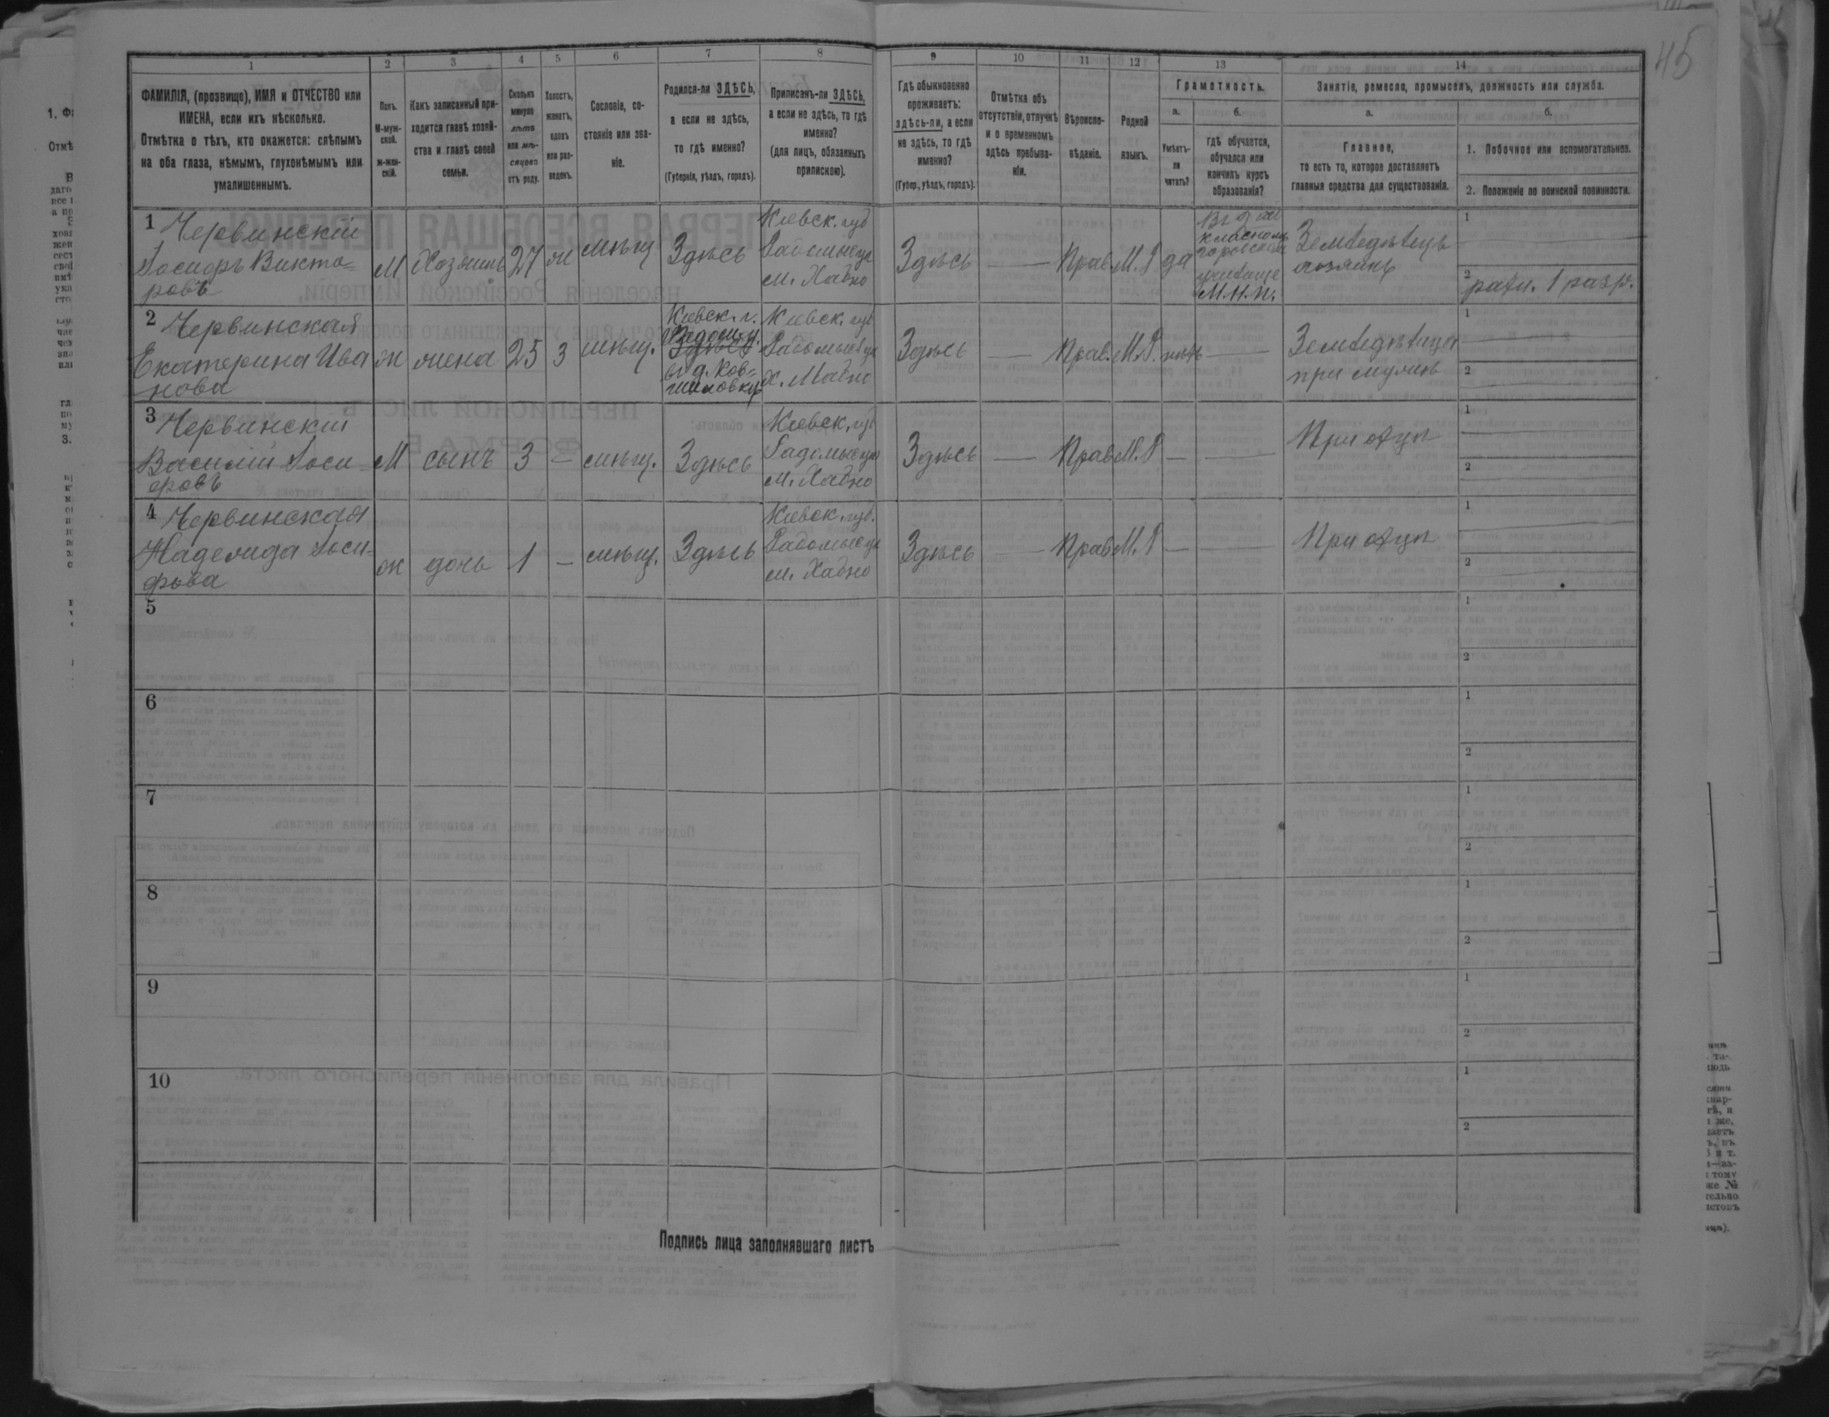 45
1 2 3 4 5 6 7 8 9 10 11 12 13 14
ФАМИЛІЯ, (прозвище), ИМЯ и ОТЧЕСТВО или
ИМЕНА, если ихъ нѣсколько.
Отмѣтка о тѣхъ, кто окажется: слѣпымъ
на оба глаза, нѣмымъ, глухонѣмымъ или
умалишеннымъ.
Полъ.
М-муж-
ской.
ж-жен-
скій.
Какъ записанный при-
ходится главѣ хозяй-
ства и главѣ своей
семьи.
Сколько
минуло
лѣтъ
или мѣ-
сяцевъ
отъ роду.
Холостъ,
женатъ,
вдовъ
или раз-
веденъ.
Сословіе, со-
стояніе или зва-
ніе.
Родился-ли ЗДѢСЬ,
а если не здѣсь,
то гдѣ именно?
(Губернія, уѣздъ, городъ).
Приписанъ-ли ЗДѢСЬ,
а если не здѣсь, то гдѣ
именно?
(для лицъ, обязанныхъ
припискою).
Гдѣ обыкновенно
проживаетъ:
здѣсь-ли, а если
не здѣсь, то гдѣ
именно?
(Губер., уѣздъ, городъ).
Отмѣтка объ
отсутствіи, отлучкѣ
и о временномъ
здѣсь пребыва-
ніи.
Вѣроиспо-
вѣданіе.
Родной
языкъ.
Грамотность.
а.
Умѣетъ-
ли
читать?
б.
гдѣ обучается,
обучался или
кончилъ курсъ
образованія?
Занятіе, ремесло, промыселъ, должность или служба.
а.
Главное,
то есть то, которое доставляетъ
главныя средства для существованія.
б.
1. Побочное или вспомогательное.
2. Положеніе по воинской повинности.
1 Червинскій
Іосифъ Викто=
ровъ
М Хозяинъ 27 ж мѣщ. Здѣсь
Кіевск. губ
Радомыс у
м. Хабно
Здѣсь — Прав. М.Р да
класномъ
училище
М.Н.П.
Земледѣлецъ
хозяинъ
1
2 ратн. 1 разр.
2 Червинская
Екатерина Ива
нова
ж жена 25 з мѣщ.
Кіевск. г.
Радом. у.
Здѣсь
Кіевск. губ
Радомыс у
м. Хабно
Здѣсь — Прав. М.Р. нѣтъ —
Земледѣлица
при мужѣ
1
2
3 Червинскій
Василій Іоси-
фовъ
М сынъ 3 — мѣщ. Здѣсь
Кіевск. губ
Радомыс у
м. Хабно
Здѣсь — Прав М.Р — —
При отцѣ
1
2
4 Червинская
Надежда Іоси-
фова
ж дочь 1 — мѣщ. Здѣсь
Кіевск. губ.
Радомыс у
м. Хабно
Здѣсь — Прав М.Р — —
При отцѣ
1
2
5
1
2
6
1
2
7
1
2
8
1
2
9
1
2
10
1
2
Подпись лица заполнявшаго листъ